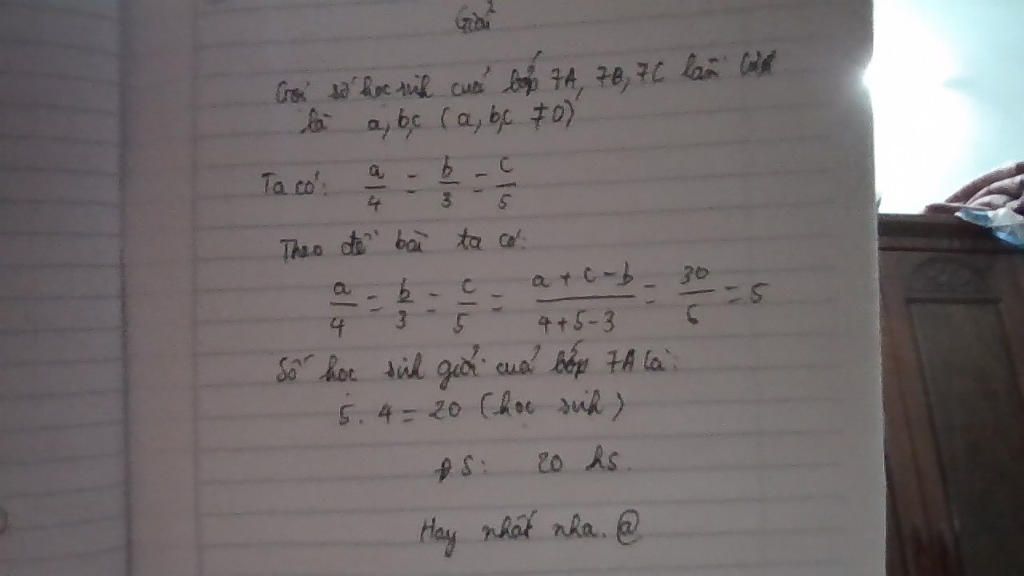 Giải
Gọi số học sinh cuả lớp 7A, 7B, 7C lần lượt
là a, b, c (a, b, c ≠ 0)
Ta có: a/4 = b/3 = c/5
Theo đề bài ta có:
a/4 = b/3 = c/5 = (a + c - b)/(4 + 5 - 3) = 30/6 = 5
Số học sinh giỏi cuả lớp 7A là:
5 . 4 = 20 (học sinh)
ĐS: 20 hs.
Hay nhất nha. @